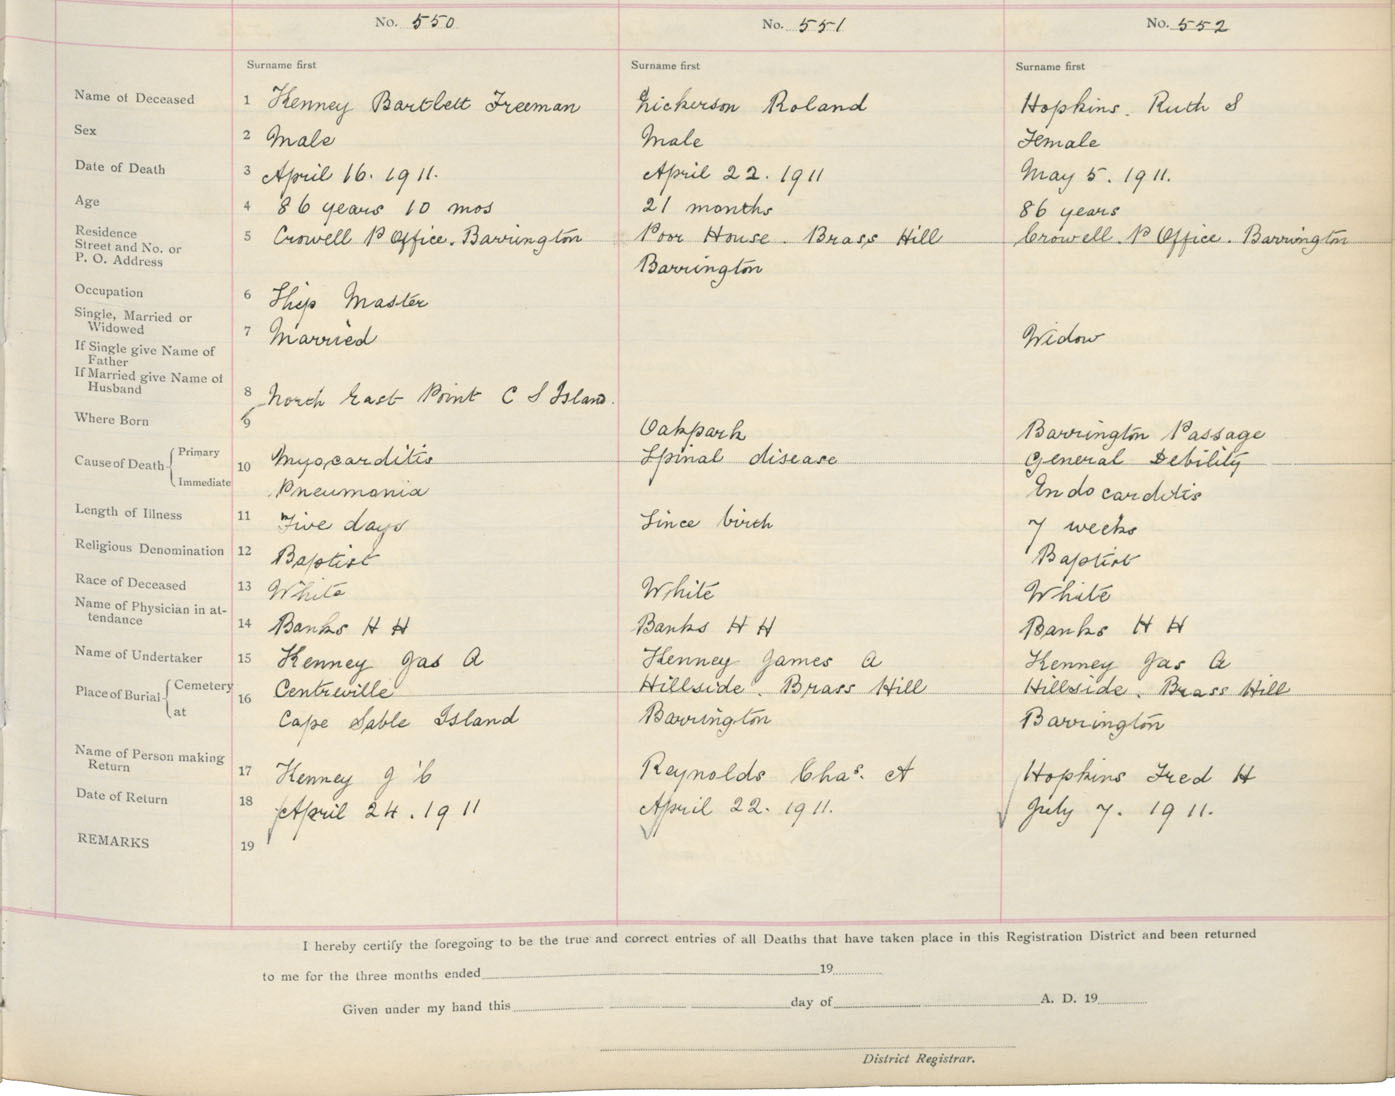 No. 550 No. 551 No. 552
Surname first Surname first Surname first
Name of Deceased 1 Kenney Bartlett Freeman Nickerson Roland Hopkins. Ruth S
Sex 2 Male Male Female
Date of Death 3 April 16. 1911. April 22. 1911 May 5. 1911.
Age 4 86 years 10 mos 21 months 86 years
Residence
Street and No. or
P. O. Address 5 Crowell P Office. Barrington Poor House. Brass Hill Crowell. P Office. Barrington
Barrington
Occupation 6 Ship Master
Single, Married or
Widowed 7 Married Widow
If Single give Name of
Father
If Married give Name of
Husband 8 North East Point C S Island.
Where Born 9 Oakpark Barrington Passage
Cause of Death Primary 10 Myocarditis Spinal disease General Debility
Immediate Pneumonia Endocarditis
Length of Illness 11 Five days Since birth 7 weeks
Religious Denomination 12 Baptist Baptist
Race of Deceased 13 White White White
Name of Physician in at-
tendance 14 Banks H H Banks H H Banks H H
Name of Undertaker 15 Kenney Jas A Kenney James A Kenney Jas A
Place of Burial Cemetery 16 Centreville Hillside. Brass Hill Hillside. Brass Hill
at Cape Sable Island Barrington Barrington
Name of Person making
Return 17 Kenney J C Reynolds Chas. A Hopkins Fred H
Date of Return 18 April 24. 1911 April 22. 1911. July 7. 1911.
REMARKS 19
I hereby certify the foregoing to be the true and correct entries of all Deaths that have taken place in this Registration District and been returned
to me for the three months ended 19
Given under my hand this day of A. D. 19
District Registrar.